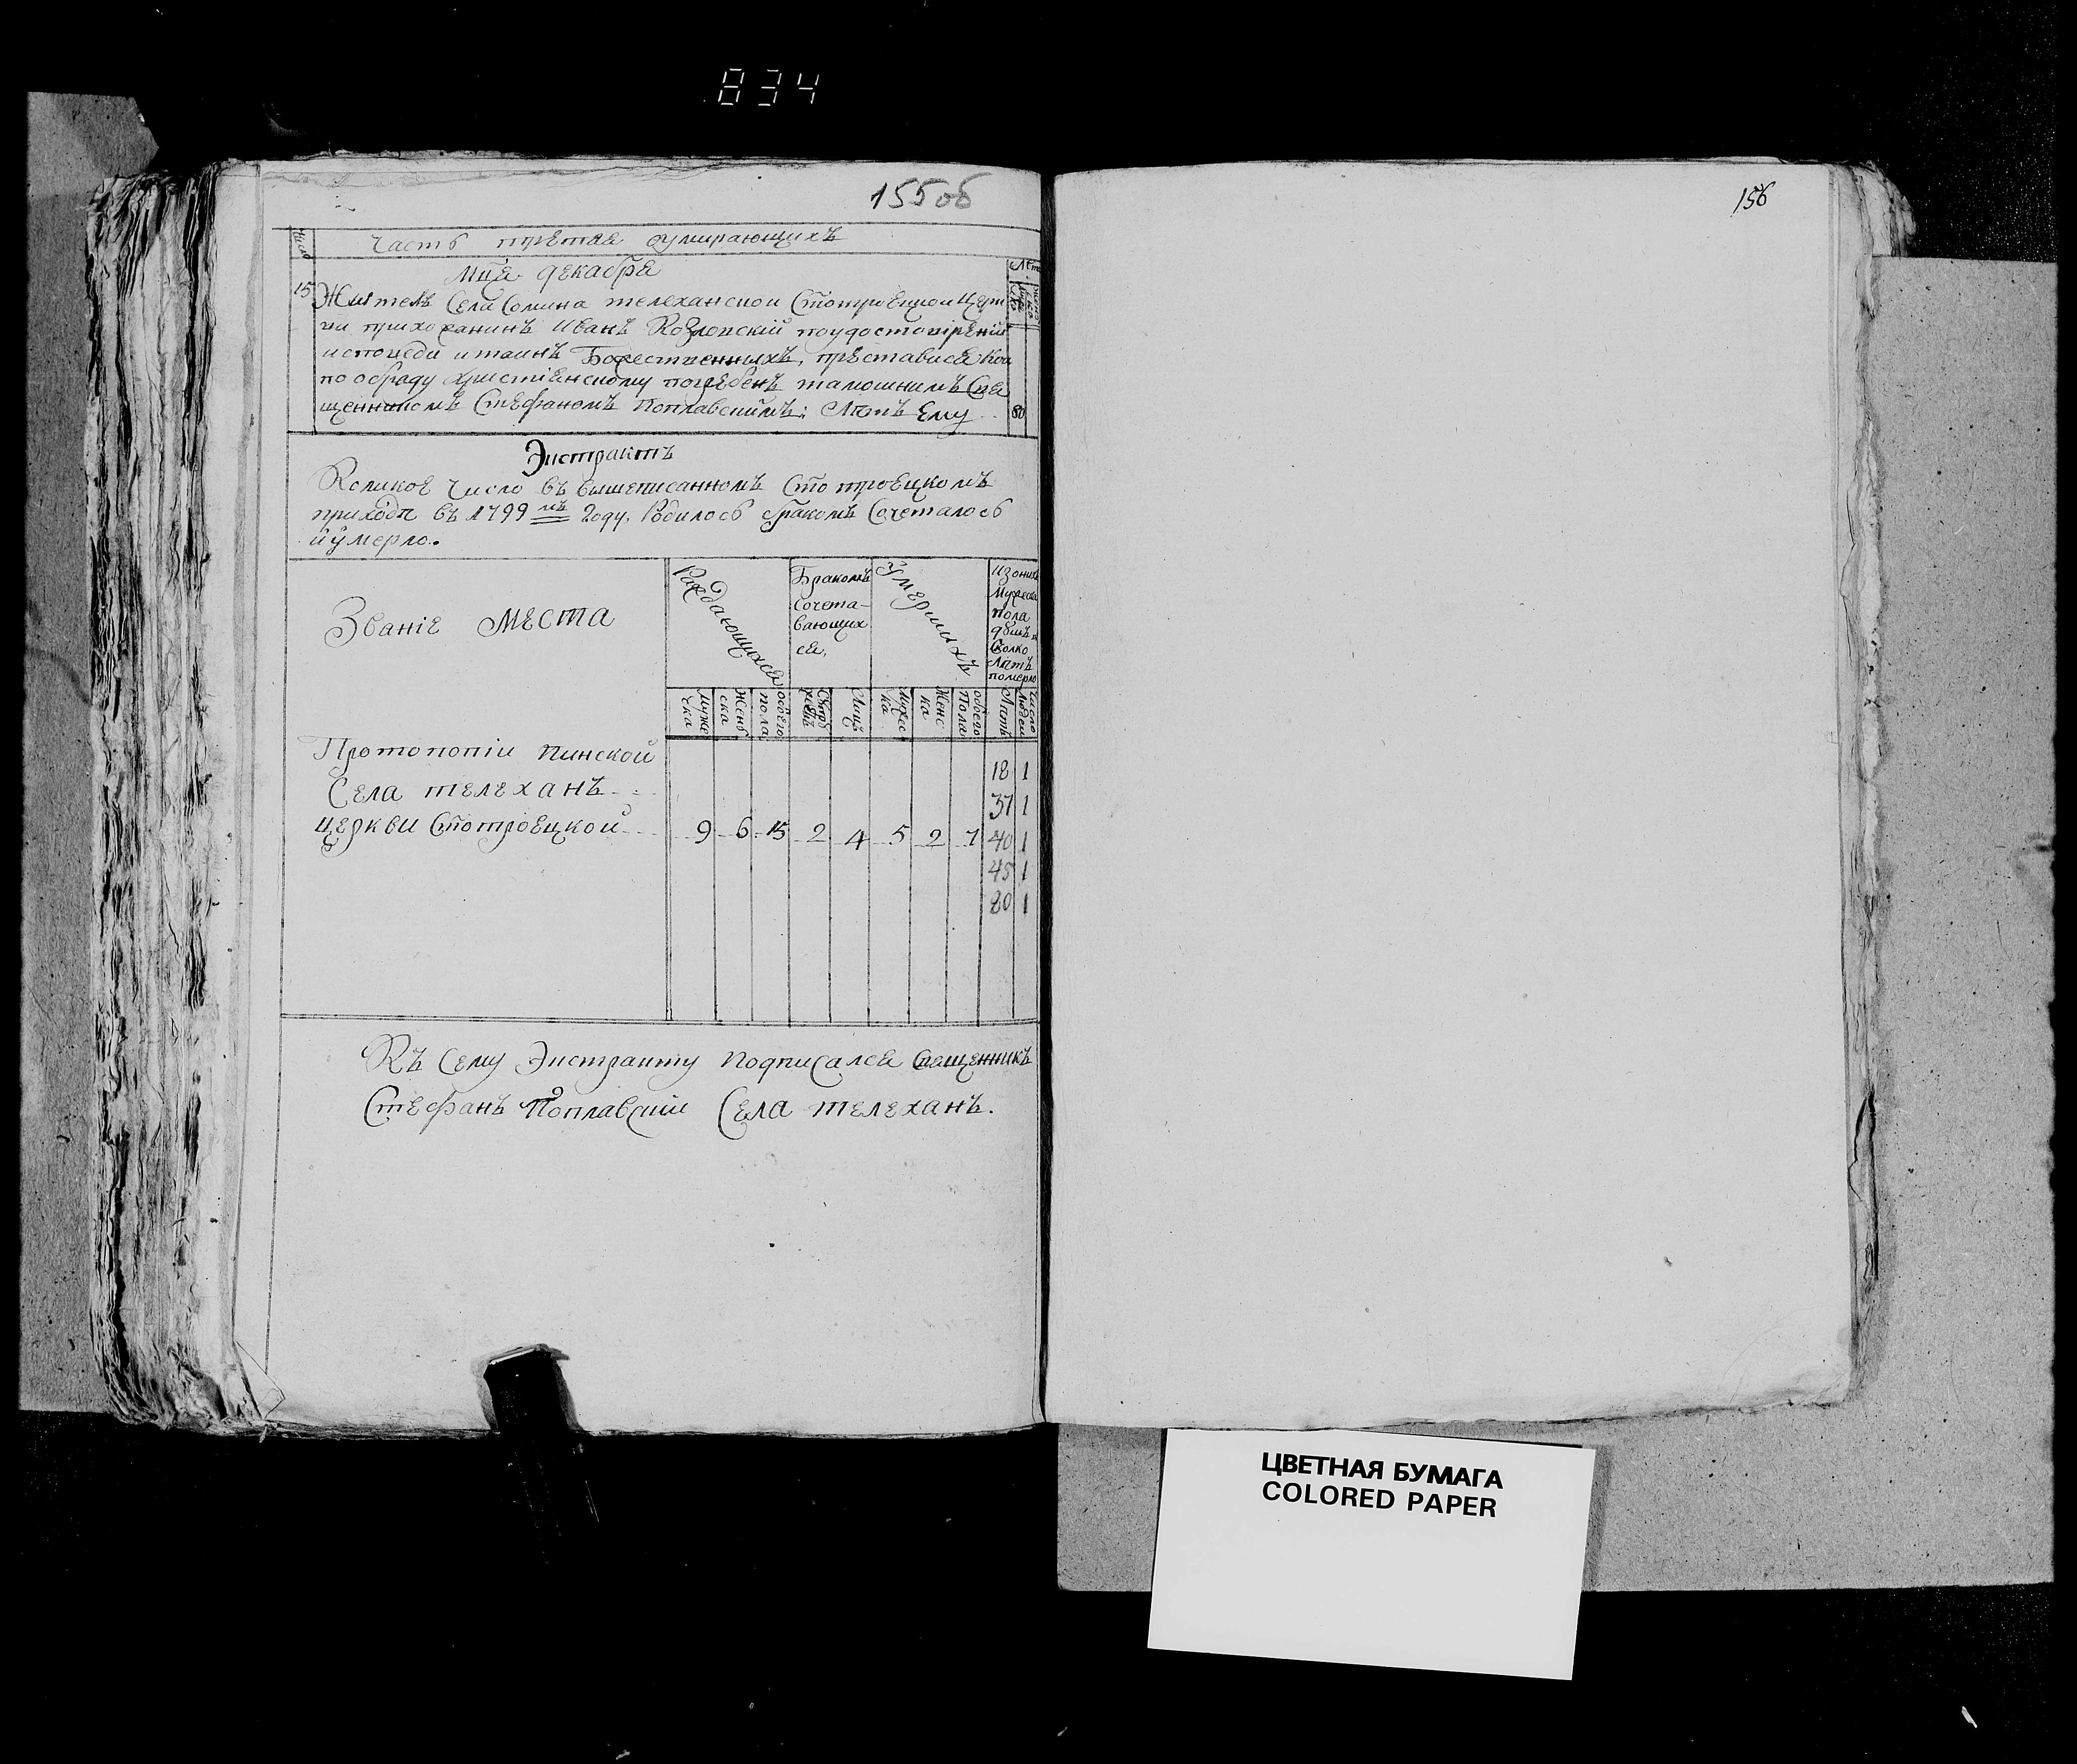 834
155об
156
Число
Часть третая оумирающихъ
Мца декабря
15 Житель Села Сомина телеханской Стотроецкой Церк
ви прихожанинъ Иванъ Козловскій
исповеди и таинъ Божественныхъ, преставися
по обряду христіенскому погребенъ тамошнимъ Свя
щенникомъ Стефаномъ Поплавскимъ: Лѣтъ Ему 80
Экстрактъ
Коликое число въ вышеписанномъ Стотроецкомъ
приходѣ въ 1799мъ году, Родилось бракомъ Сочеталось
и умерло.
Званіе места
Раждающихся
Бракомъ
Сочета-
вающих
ся,
Умершихъ
Изоних
Мужеска
пола
Сколко
Лѣтъ
померло
муже
ска
Женс
ска
обоего
пола
Лицъ
Мужес
ка
Женс
ка
обоего
Пола
Лѣтъ
Число
Людей
Протопопіи пинской
Села телеханъ
церкви Стотроецкой 9 6 15 2 4 5 2 7
18 1
37 1
40 1
45 1
80 1
Къ Сему Экстракту подписался Священникъ
Стефанъ Поплавский Села телеханъ.
ЦВЕТНАЯ БУМАГА
COLORED PAPER